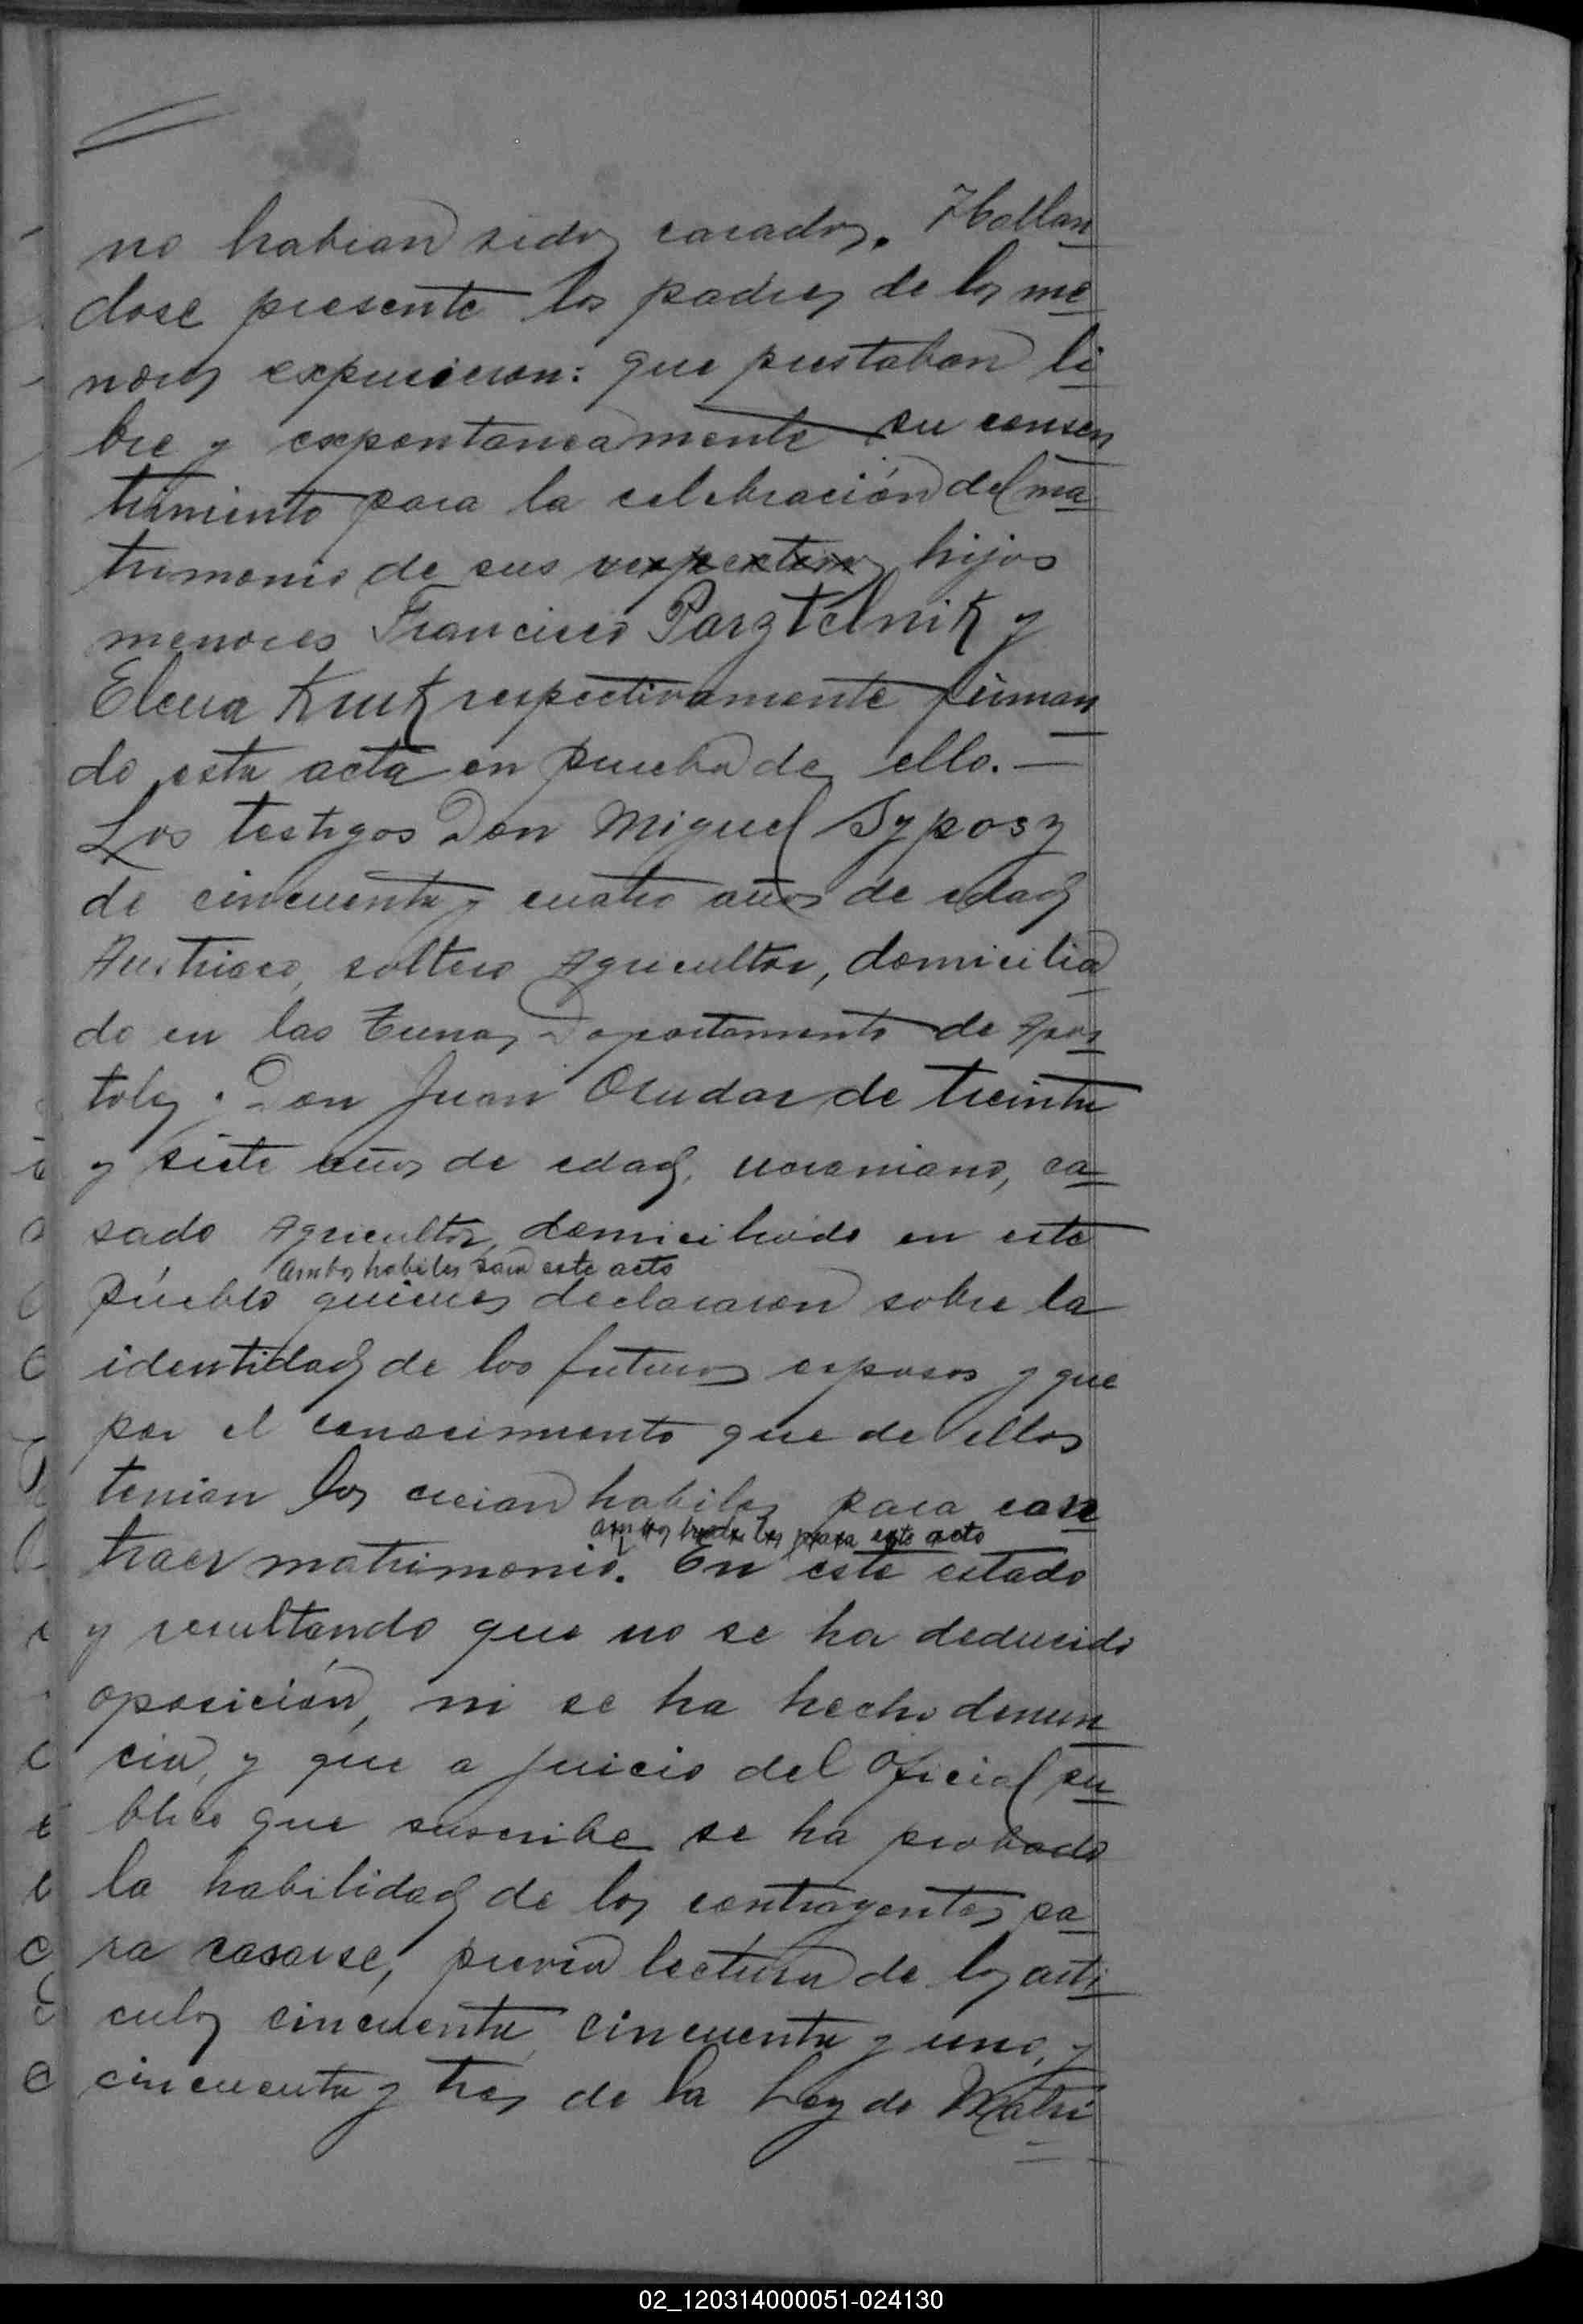 no habian sidos casados. Hallan
dose presente los padres de los me
nores expusieron: que prestaban li
bre y expontaneamente su consen
timiento para la celebración del ma
trimonio de sus respectivos hijos
menores Francisco Parztelnik y
Elena Kruk respectivamente firman
do esta acta en prueba de ello. —
Los testigos Don Miguel Syposz
de cincuenta y cuatro años de edad
Austriaco, soltero Agricultor, domicilia
do en las Tunas Departamento de Apos
toles. Don Juan Osudar de treinta
y siete años de edad, ucraniano, ca
sado Agricultor, domiciliado en este
ambos habiles para este acto
Pueblo quienes declararon sobre la
identidad de los futuros esposos y que
por el conocimiento que de ellos
tenian los creian habiles para con
ambos habiles para este acto
traer matrimonio. En este estado
y resultando que no se ha deducido
oposición, ni se ha hecho denun
cia, y que a juicio del Oficial pu
blico que suscribe se ha probado
la habilidad de los contrayentes pa
ra casarse, previa lectura de los arti
culos cincuenta, cincuenta y uno, y
cincuenta y tres de la Ley de Matri
02_120314000051-024130